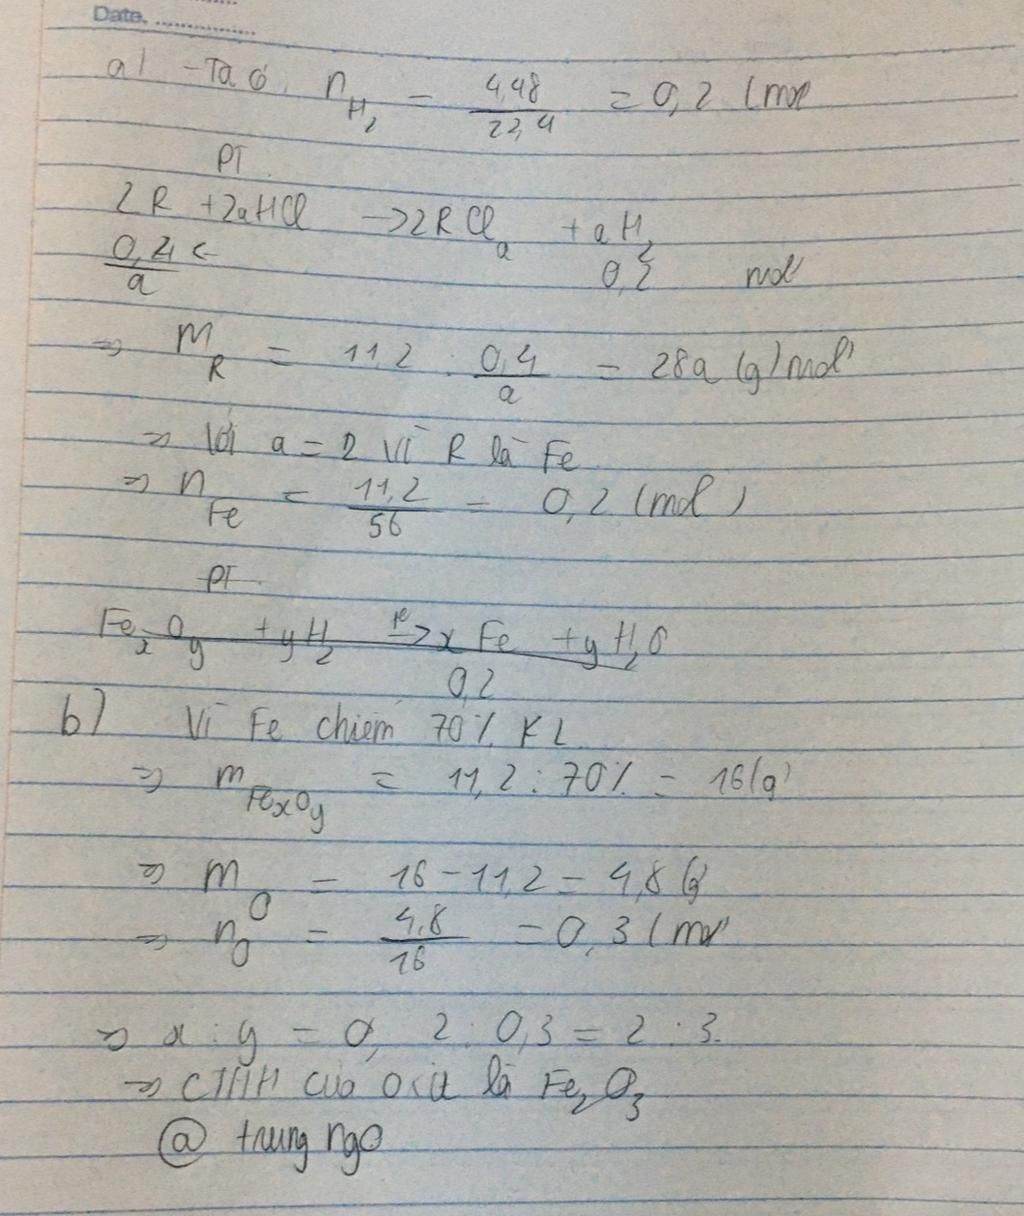 Date. ............
a) - Ta có n_H₂ = 4,48/22,4 = 0,2 (mol
PT
2R + 2aHCl → 2RClₐ + aH₂
0,4/a ← 0,2 mol
=> M_R = 11,2 : 0,4/a = 28a (g/mol)
=> Với a = 2 Vì R là Fe
=> n_Fe = 11,2/56 = 0,2 (mol)
PT
FeₓO_y + yH₂ -t°-> xFe + yH₂O
0,2
b) Vì Fe chiếm 70% KL
=> m_FeₓO_y = 11,2 : 70% = 16(g)
=> m_O = 16 - 11,2 = 4,8 (g)
=> n_O = 4,8/16 = 0,3 (mol
=> x : y = 0, 2 : 0,3 = 2 : 3.
=> CTHH của oxit là Fe₂O₃
@ trung ngo